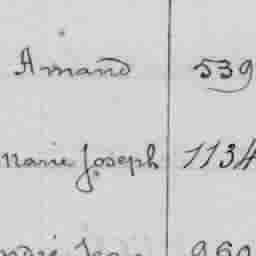 Amand 539
Marie Joseph 1134